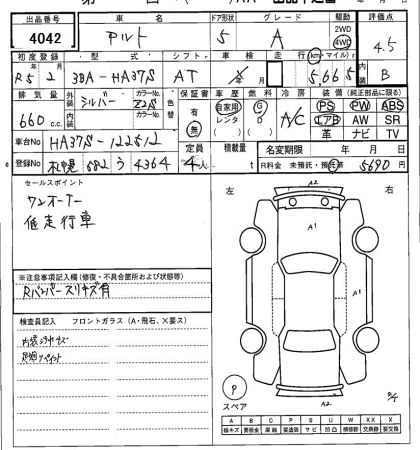 出品番号 車名 ドア形状 グレード 駆動 評価点
4042 アルト 5 A 2WD 4WD 4.5
初度登録 型式 シフト 車検 走行(km・マイル) 内装
R5年2月 3BA-HA37S AT 年月 5,665 B
排気量 外装 シルバー カラーNo. Z2S 色替 保証書 車歴 燃料 冷房 装備(純正部品に限る)
660 c.c. 内装 カラーNo. 有 無 自家用 レンタ G D A/C PS PW ABS
エアB AW SR
革 ナビ TV
車台No HA37S-122512
登録No 札幌 582 う 4364 定員 4人 積載量 t
名変期限 年 月 日
R料金 未預託・預託済 5690 円
セールスポイント
ワンオーナー
低走行車
※注意事項記入欄(修復・不具合箇所および状態等)
Rバンパースリキズ有
検査員記入 フロントガラス(A・飛石、X要ス)
左 右
A2
A1
A1
P
スペア
A2
A B C P S U W XX X
線キズ 要板金 腐蝕 要塗装 サビ 凹凸 補修跡 交換跡 要交換